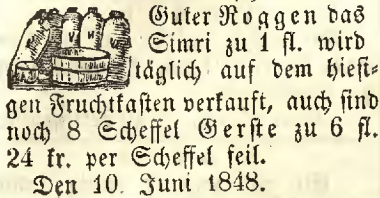 Guter Roggen das
Simri zu 1 fl. wird
täglich auf dem hiesi-
gen Fruchtkasten verkauft, auch sind
noch 8 Scheffel Gerste zu 6 fl.
24 kr. per Scheffel feil.
Den 10. Juni 1848.